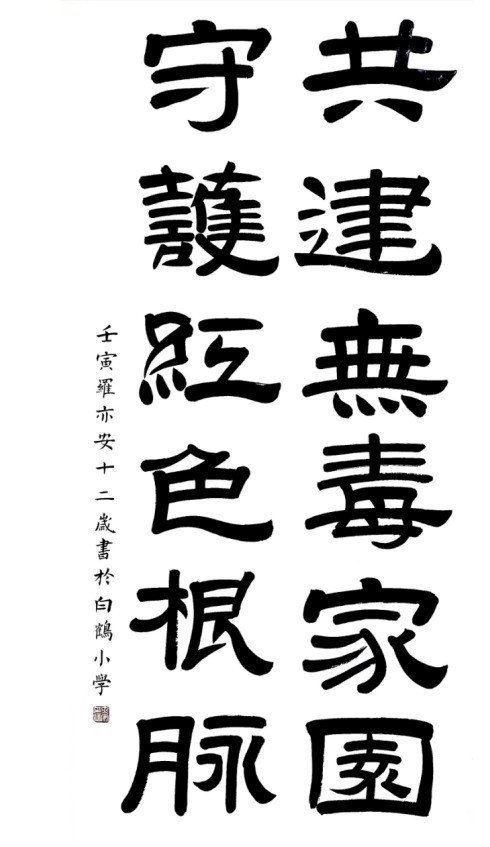 共建無毒家園
守護紅色根脉
壬寅羅亦安十二歲書於白鶴小學